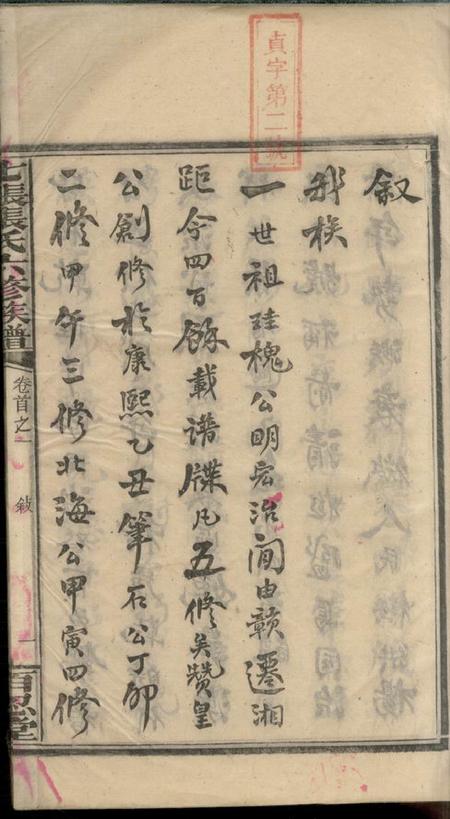 貞字第二號
叙
我族
一世祖珪槐公明宏治間由贛遷湘
距今四百餘載谱牒凡五修矣贊皇
公創修於康熙乙丑筆石公丁卯
二修甲午三修北海公甲寅四修
七張張氏六修族譜
卷首之一
敘
一
百忍堂